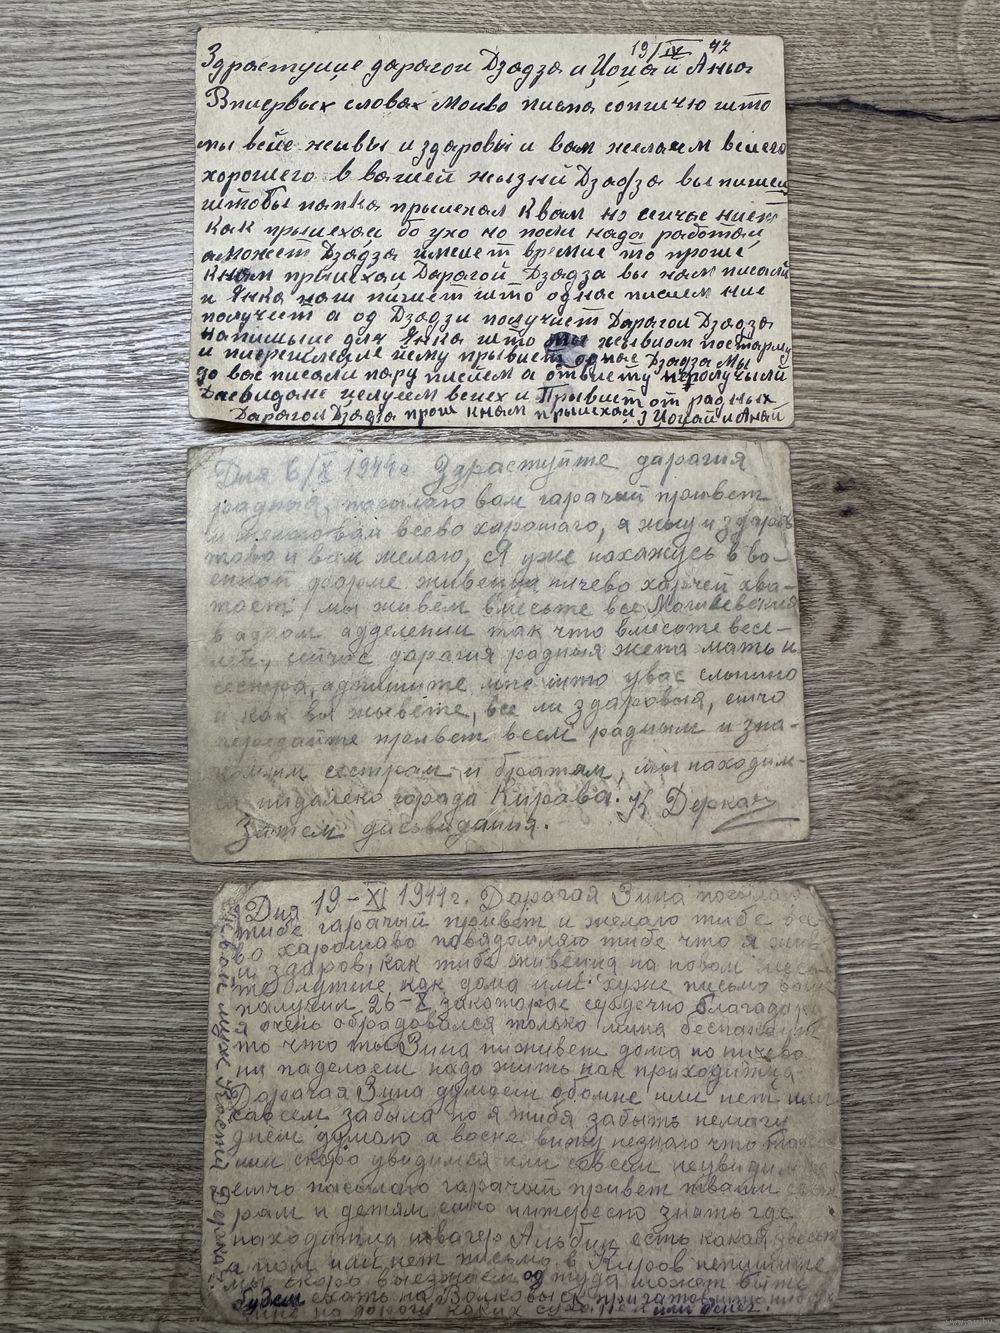 19/IV 47
Здраствуйце дарагои Дзадза и Цоцай Аньа
Впиервых словах Моиво писма сопшчю што
мы вейе живы и здаровы и вам желаем всиего
хорошего в вашей жызни Дзадза вы пишец
штобы папка прыиехал Квам но сичас
как прыиехаи но поли нада работаи
аможет Дзадза имиеет времие то проше
кнам прыиехаи Дарагой Дзадза вы нам писали
и Янка наш пишет што однас писием ние
получает а од Дзадзи получает Дарагои Дзадза
напишыце для Янка што мы живиом постарму
и пиерешлеце йему прывиет однас Дзадза Мы
до вас писали пару писием а отвиету неполучыли
Дасвидане целуем всиех и Прывиет от радных
Дарагои Дзадза прош кнам прыиехаи з Цоцай и Анай
Дня 6/X 1944г Здраствуйте дарагия
радныя, пасылаю вам гарачий привет
и желаю вам всево харошаго, я жыву и здаров
таво и вам желаю, Я уже нахажусь в ва-
енной форме живеция ничево харчей хва-
тает, мы живём вместе все
в адном адделении так что вместе весе-
лей, сейчас дарагия радныя жена мать и
сестра, адпишите мне што увас слышно
и как вы жывете, все ли здаровыя, ещчо
передайте превет всем радным и зна-
комым сестрам и братям, мы находим-
ся нидалеко города Кирава. К Деркач
Затем дасвидания.
Дня 19-XI 1944г. Дарагая Зина посылаю
тибе гарачый привет и желаю тибе
во харошаво павядомляю тибе что я жив
и здаров, как тибе живеция на новом месте
лутше как дома или хуже письмо ваше
палучил 26-X закоторае сердечно благадарю
я очень обрадовался только миня беспакоит
то что ты Зина ниживет дома но ничево
ни паделаеш надо жить как приходитца
Дарагая Зина думаеш обомне или нет или
савсем забыла но я тибя забыть немагу
днём думаю а восне вижу незнаю что
или скоро увидимся или совсем неувидимся
ещчо пасылаю гарачий привет тваим сест-
рам и детям ещчо интересно знать где
находитца Альбин есть какая
о нём или нет письма в Киров непишите
мы скоро выезжаем од туда может быть
будем ехать на Волковыск
на дорогу каких или денег.
Твой муж Деркач